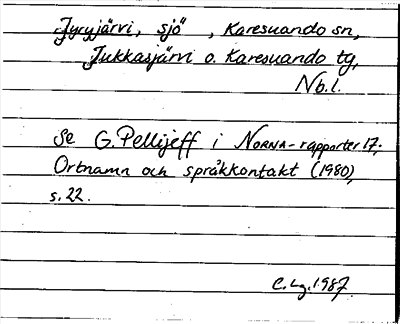 Jyryjärvi, sjö , Karesuando sn,
Jukkasjärvi o. Karesuando tg,
Nb.l.
Se G. Pellijeff i NORNA-rapporter 17.
Ortnamn och språkkontakt (1980),
s. 22.
C. Lg. 1987.